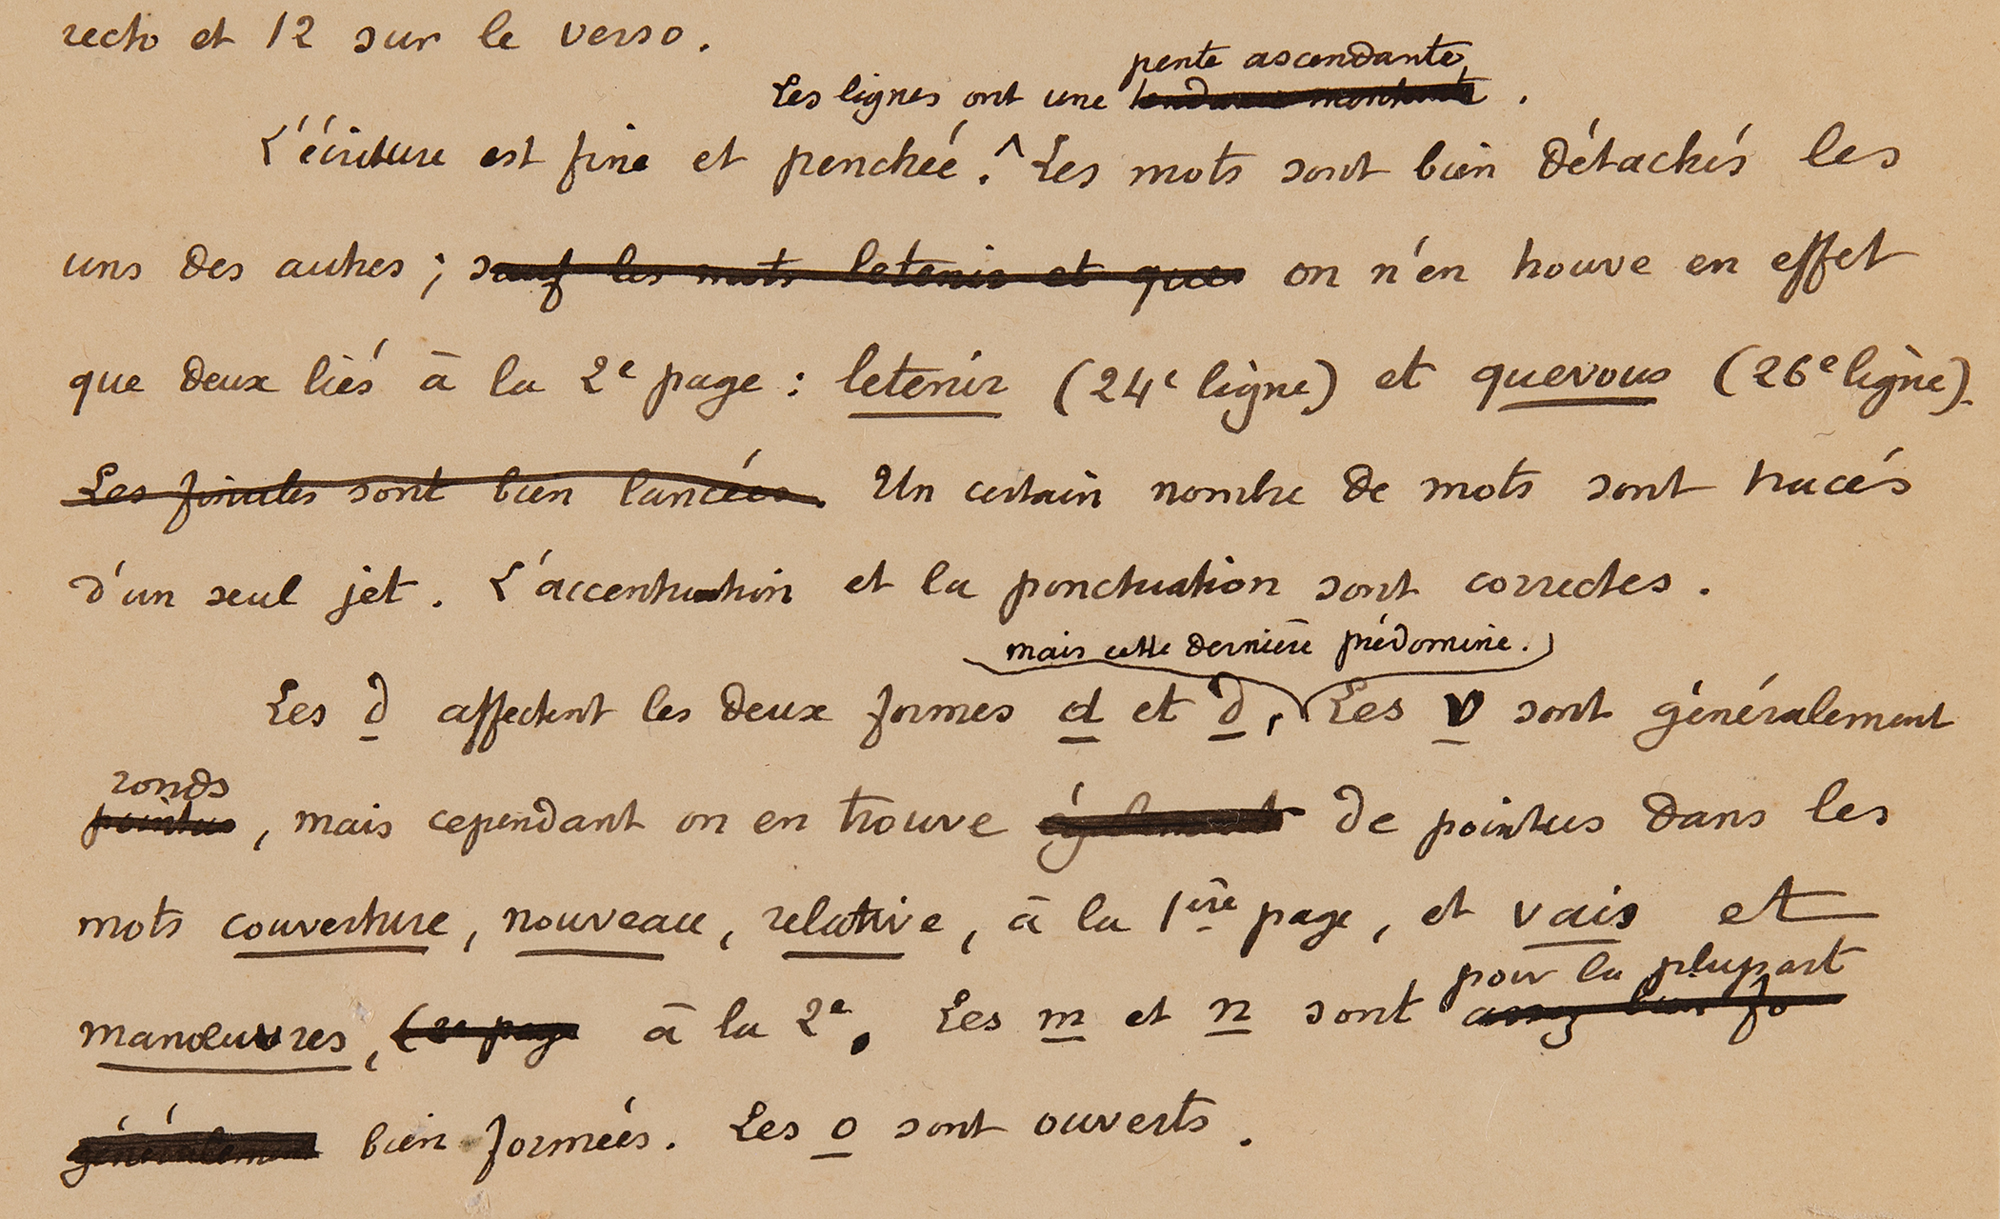 recto et 12 sur le verso.
pente ascendante
Les lignes ont une tendance montante .
L'écriture est fine et penchée. ^ Les mots sont bien détachés les
uns des autres ; sauf les mots letenir et que on n'en trouve en effet
que deux liés à la 2e page : letenir (24e ligne) et quevous (26e ligne).
Les finales sont bien lancées. Un certain nombre de mots sont tracés
d'un seul jet. L'accentuation et la ponctuation sont correctes.
mais cette dernière prédomine.
Les d affectent les deux formes d et d, Les v sont généralement
ronds
pointus, mais cependant on en trouve également de pointus dans les
mots couverture, nouveau, relative, à la 1ère page, et vais et
pour la plupart
manœuvres, (2e page à la 2e. Les m et n sont assez bien fo
généralement bien formées. Les o sont ouverts.